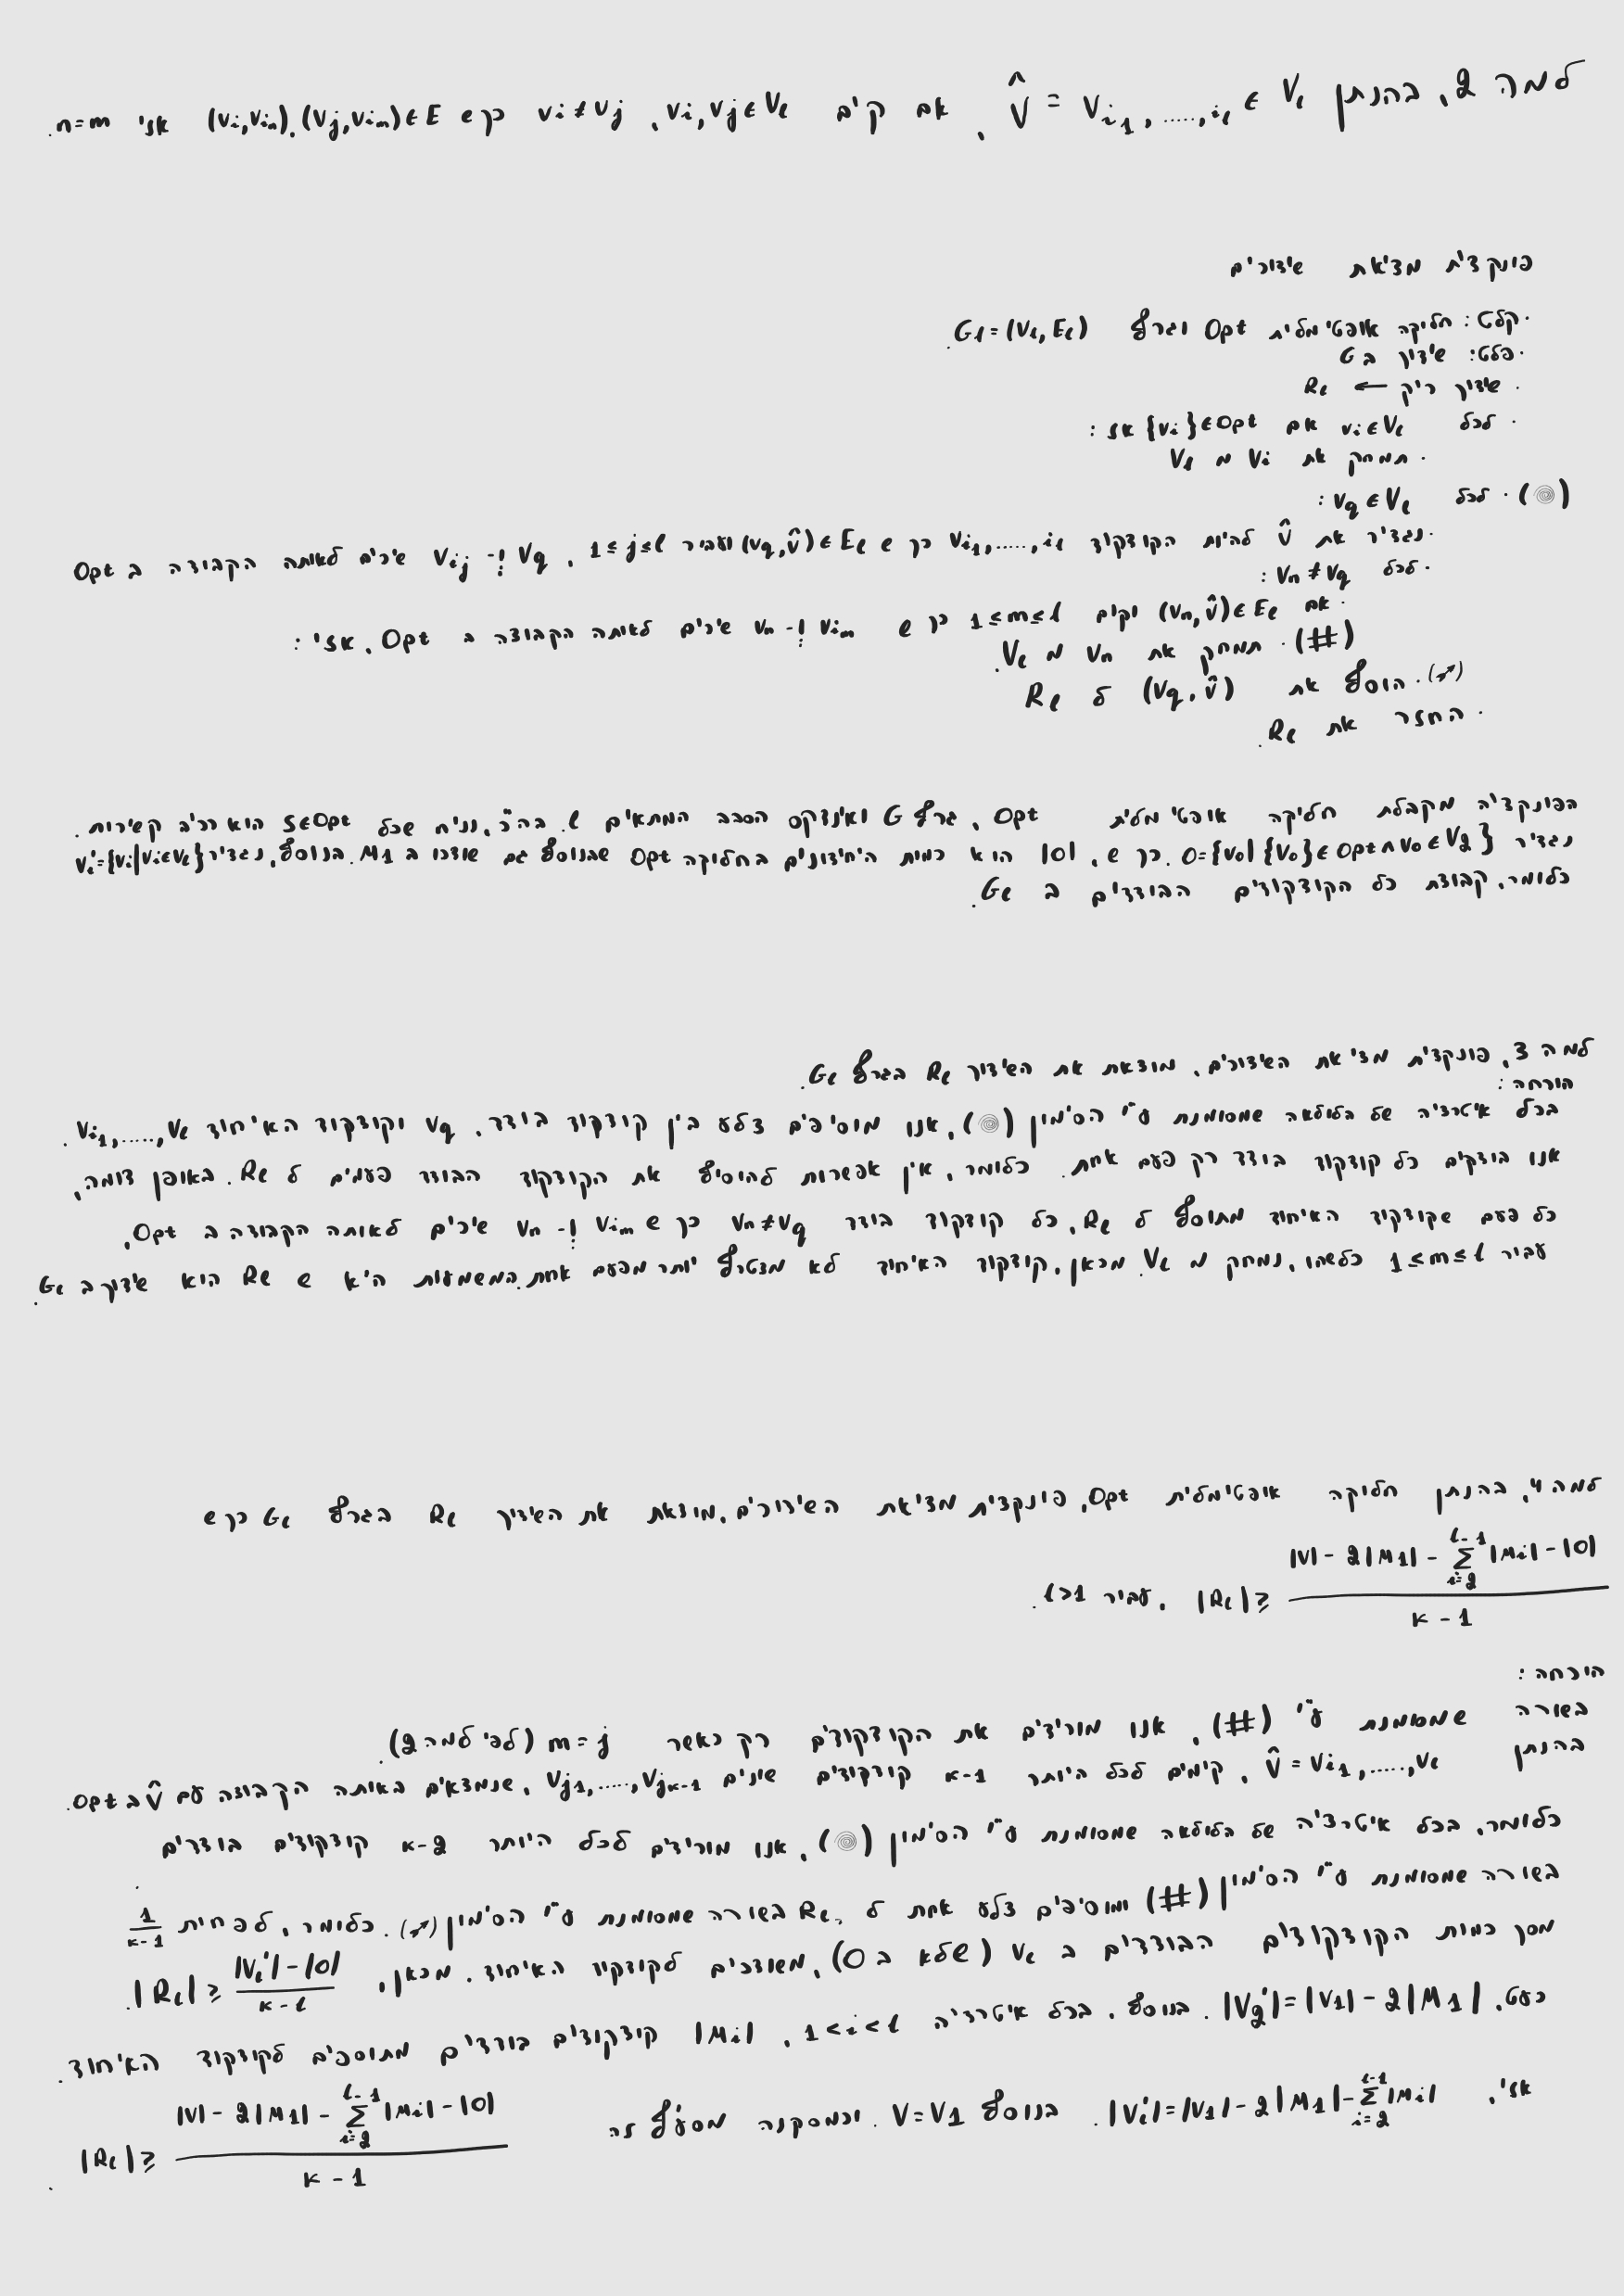 למה 2, בהנתן V̂ = v_{i_1,.....,i_ℓ} ∈ V_ℓ, אם קיים v_i,v_j∈V_ℓ, v_i≠v_j כך ש (v_i,v_{i_n}),(v_j,v_{i_m})∈E אזי n=m.
פונקצית מציאת שידורים
·קלט: חליקה אופטימלית Opt וגרף G_ℓ=(V_ℓ,E_ℓ).
·פלט: שידוך ב G
· שידוך ריק ⟵ R_ℓ
· לכל v_i∈V_ℓ אם {v_i}∈Opt אז:
· תמחק את v_i מ V_ℓ
(◎) · לכל v_q∈V_ℓ:
·נגדיר את v̂ להיות הקודקוד v_{i_1,.....,i_ℓ} כך ש (v_q,v̂)∈E_ℓ ועביר 1≤j≤ℓ, v_q ו- v_{i_j} שיכים לאותה הקבוצה ב Opt
·לכל v_n≠v_q:
·אם (v_n,v̂)∈E_ℓ וקיים 1≤m≤ℓ כך ש v_{i_m} ו- v_n שיכים לאותה הקבוצה ב Opt, אזי:
(#)· תמחק את v_n מ V_ℓ.
(↗)· הוסף את (v_q,v̂) ל R_ℓ
· החזר את R_ℓ.
הפונקציה מקבלת חליקה אופטימלית Opt, גרף G ואינדקס הסבב המתאים ℓ. בה"כ, נניח שכל S∈Opt הוא רכיב קשירות.
נגדיר O={v_0|{v_0}∈Opt∩v_0∈V_2}. כך ש, |O| הוא כמות היחידונים בחליקה Opt שבנוסף גם שודכו ב M_1. בנוסף, נגדיר V_ℓ'={v_i|v_i∈V_ℓ}
כלומר, קבוצת כל הקודקודים הבודדים ב G_ℓ.
למה 3, פונקצית מציאת השידורים, מוצאת את השידוך R_ℓ בגרף G_ℓ.
הוכחה:
בכל איטרציה של הלולאה שמסומנת ע"י הסימון (◎), אנו מוסיפים צלע בין קודקוד בודד, v_q וקודקוד האיחוד v_{i_1},.....,v_ℓ.
אנו בודקים כל קודקוד בודד רק פעם אחת. כלומר, אין אפשרות להוסיף את הקודקוד הבודד פעמים ל R_ℓ. באופן דומה,
כל פעם שקודקוד האיחוד מתוסף ל R_ℓ, כל קודקוד בודד v_n≠v_q כך ש v_{i_m} ו- v_n שיכים לאותה הקבוצה ב Opt,
עביר 1≤m≤ℓ כלשהו, נמחק מ V_ℓ. מכאן, קודקוד האיחוד לא מצטרף יותר מפעם אחת. המשמעות היא ש R_ℓ היא שידוך ב G_ℓ.
למה 4, בהנתן חליקה אופטימלית Opt, פונקצית מציאת השידורים, מוצאת את השידוך R_ℓ בגרף G_ℓ כך ש
|R_ℓ| ≥ (|V| - 2|M_1| - Σ_{i=2}^{ℓ-1} |M_i| - |O|) / (k-1), עביר ℓ>1.
הוכחה:
בשורה שמסומנת ע"י (#), אנו מורידים את הקודקודים רק כאשר m=j (לפי למה 2).
בהנתן V̂=v_{i_1},.....,v_ℓ, קימים לכל היותר k-1 קודקודים שונים v_{j_1},.....,v_{j_{k-1}}, שנמצאים באותה הקבוצה עם v̂ ב Opt.
כלומר, בכל איטרציה של הלולאה שמסומנת ע"י הסימון (◎), אנו מורידים לכל היותר k-2 קודקודים בודדים
בשורה שמסומנת ע"י הסימון (#) ומוסיפים צלע אחת ל R_ℓ, בשורה שמסומנת ע"י הסימון (↗). כלומר, לפחות 1/(k-1)
מסך כמות הקודקודים הבודדים ב V_ℓ (שלא ב O), משודכים לקודקוד האיחוד. מכאן, |R_ℓ| ≥ (|V_ℓ'|-|O|)/(k-ℓ).
כעט, |V_2'|=|V_1|-2|M_1|. בנוסף, בכל איטרציה 1<i<ℓ, |M_i| קודקודים בודדים מתוספים לקודקוד האיחוד.
אזי, |V_ℓ'|=|V_1|-2|M_1|-Σ_{i=2}^{ℓ-1}|M_i|. בנוסף V=V_1. וכמסקנה מסעיף זה |R_ℓ| ≥ (|V| - 2|M_1| - Σ_{i=2}^{ℓ-1} |M_i| - |O|) / (k-1).